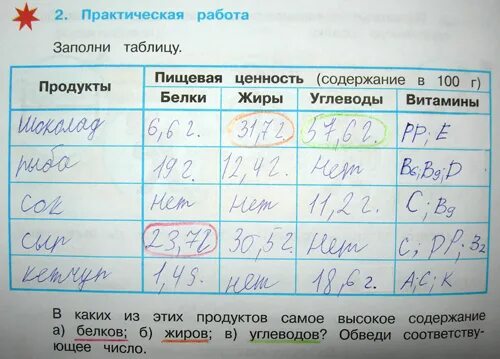 2. Практическая работа
Заполни таблицу.
Продукты
Пищевая ценность (содержание в 100 г)
Белки Жиры Углеводы Витамины
шоколад 6,6 г. 31,7 г 57,6 г. РР; Е
рыба 19 г. 12,4 г. Нет В6; В9; D
сок Нет Нет 11,2 г. С; В9
сыр 23,7 г 30,5 г. Нет С;
кетчуп нет 18,6 г. А; С; К
В каких из этих продуктов самое высокое содержание
а) белков; б) жиров; в) углеводов? Обведи соответству-
ющее число.